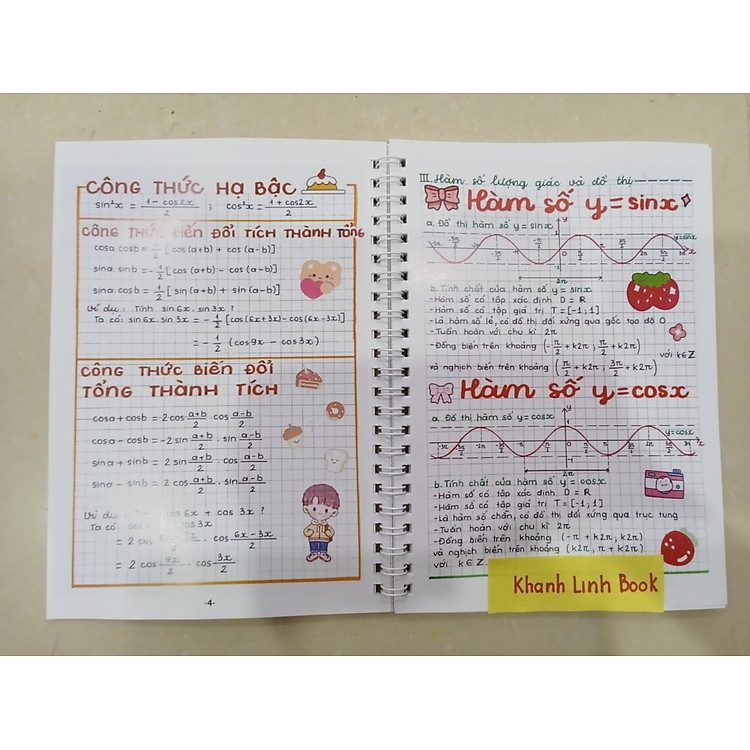 CÔNG THỨC HẠ BẬC
sin²x = (1 - cos2x)/2 ; cos²x = (1 + cos2x)/2
CÔNG THỨC BIẾN ĐỔI TÍCH THÀNH TỔNG
cosa.cosb = 1/2 [cos(a+b) + cos(a-b)]
sina.sinb = -1/2 [cos(a+b) - cos(a-b)]
sina.cosb = 1/2 [sin(a+b) + sin(a-b)]
Ví dụ: Tính sin6x.sin3x ?
Ta có: sin6x.sin3x = -1/2 [cos(6x+3x)-cos(6x-3x)]
= -1/2 (cos9x - cos3x)
CÔNG THỨC BIẾN ĐỔI
TỔNG THÀNH TÍCH
cosa + cosb = 2cos (a+b)/2 . cos (a-b)/2
cosa - cosb = -2sin (a+b)/2 . sin (a-b)/2
sina + sinb = 2sin (a+b)/2 . cos (a-b)/2
sina - sinb = 2cos (a+b)/2 . sin (a-b)/2
Ví dụ : Tính cos6x + cos3x ?
Ta có cos3x
= 2 cos . cos (6x-3x)/2
= 2 cos 9x/2 . cos 3x/2
-4-
III. Hàm số lượng giác và đồ thị
Hàm số y = sinx
a. Đồ thị hàm số y = sinx
y
y=sinx
1
0
-1
x
2π
b. Tính chất của hàm số y = sinx
- Hàm số có tập xác định D = R
- Hàm số có tập giá trị T = [-1; 1]
- Là hàm số lẻ, có đồ thị đối xứng qua gốc tọa độ O
- Tuần hoàn với chu kì 2π
- Đồng biến trên khoảng (-π/2 + k2π; π/2 + k2π)
và nghịch biến trên khoảng (π/2 + k2π; 3π/2 + k2π) với k∈Z
Hàm số y = cosx
a. Đồ thị hàm số y = cosx
y
y=cosx
1
0
-1
x
2π
b. Tính chất của hàm số y = cosx
- Hàm số có tập xác định D = R
- Hàm số có tập giá trị T = [-1; 1]
- Là hàm số chẵn, có đồ thị đối xứng qua trục tung
- Tuần hoàn với chu kì 2π
- Đồng biến trên khoảng (-π + k2π; k2π)
và nghịch biến trên khoảng (k2π; π + k2π)
với k ∈ Z.
Khanh Linh Book